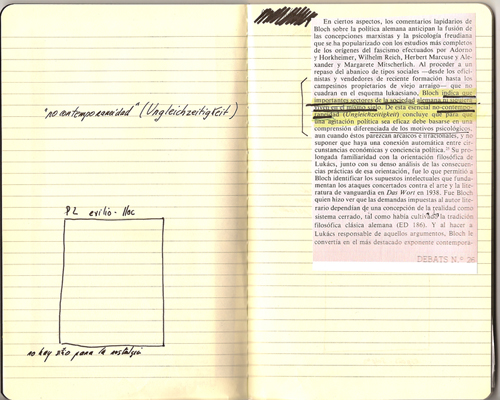 "no contemporaneidad" (Ungleichzeitigkeit)
PL exilio - lloc
no hay sitio para la nostalgia
En ciertos aspectos, los comentarios lapidarios de
Bloch sobre la política alemana anticipan la fusión de
las concepciones marxistas y la psicología freudiana
que se ha popularizado con los estudios más completos
de los orígenes del fascismo efectuados por Adorno
y Horkheimer, Wilhelm Reich, Herbert Marcuse y Ale-
xander y Margarete Mitscherlich. Al proceder a un
repaso del abanico de tipos sociales —desde los ofici-
nistas y vendedores de reciente formación hasta los
campesinos propietarios de viejo arraigo— que no
cuadran en el esquema lukasiano, Bloch indica que
importantes sectores de la sociedad alemana ni siquiera
viven en el mismo siglo. De esta esencial no-contempo-
raneidad (Ungleichzeitigkeit) concluye que para que
una agitación política sea eficaz debe basarse en una
comprensión diferenciada de los motivos psicológicos,
aun cuando éstos parezcan arcaicos e irracionales, y no
suponer que haya una conexión automática entre cir-
cunstancias económicas y conciencia política. Su pro-
longada familiaridad con la orientación filosófica de
Lukács, junto con su denso análisis de las consecuen-
cias prácticas de esa orientación, fue lo que permitió a
Bloch identificar los supuestos intelectuales que funda-
mentan los ataques concertados contra el arte y la lite-
ratura de vanguardia en Das Wort en 1938. Fue Bloch
quien hizo ver que las demandas impuestas al autor lite-
rario dependían de una concepción de la realidad como
sistema cerrado, tal como había la tradición
filosófica clásica alemana (ED 186). Y al hacer a
Lukács responsable de aquellos argumentos, Bloch le
convertía en el más destacado exponente contempora-
DEBATS N.º 26